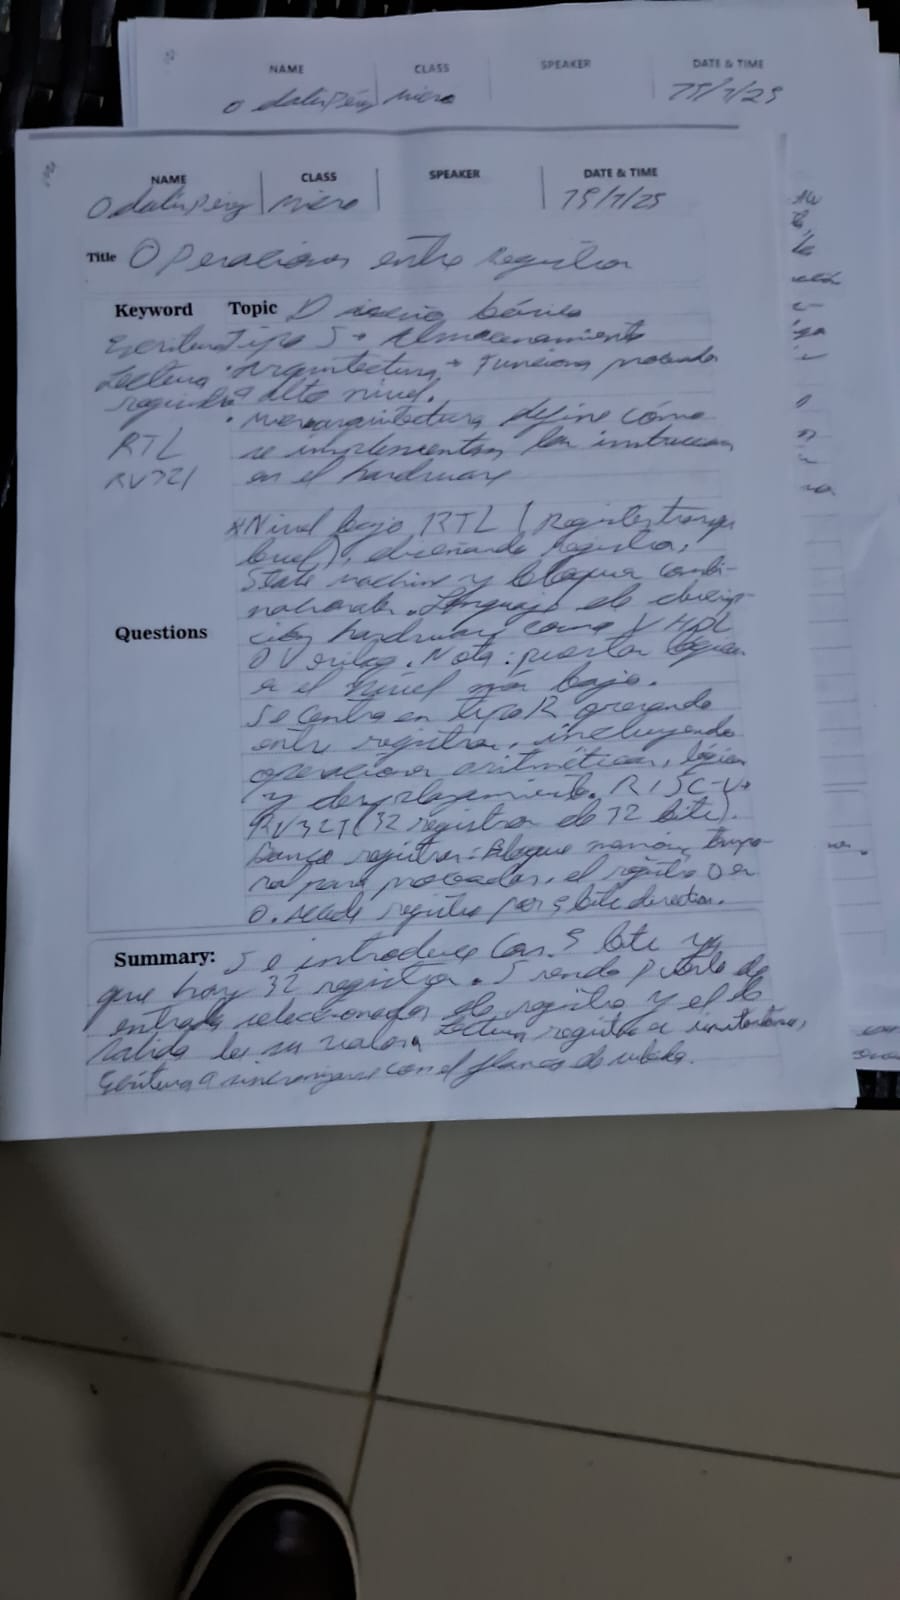 NAME CLASS SPEAKER DATE & TIME
Micro
NAME CLASS SPEAKER DATE & TIME
Micro
Title Operaciones entre registros
Keyword Topic Diseño básico
Escritura Tipo S → Almacenamiento
Lectura · Arquitectura → Funciona procesador
registro a alto nivel.
· Microarquitectura define cómo
RTL se implementan las instrucciones
RV32I en el hardware
*Nivel bajo RTL (Register transfer
level), diseñando registros,
State machine y bloques combi-
nacionales. Lenguaje de descrip-
Questions ción hardware como VHDL
o Verilog. Nota: puertas lógicas
es el nivel más bajo.
Se centra en tipo R operando
entre registros, incluyendo
operaciones aritméticas, lógicas
y desplazamiento. RISC-V→
RV32I (32 registros de 32 bits).
Banco registros: Bloque memoria tempo-
ral para procesador, el registro 0 es
0. Accede registro por 5 bits direction.
Summary: Se introduce con 5 bits ya
que hay 32 registros. Siendo puerto de
entrada seleccionador de registro y el de
salida de su valor. Lectura registro es instantánea,
Escritura a sincronizarse con el flanco de subida.